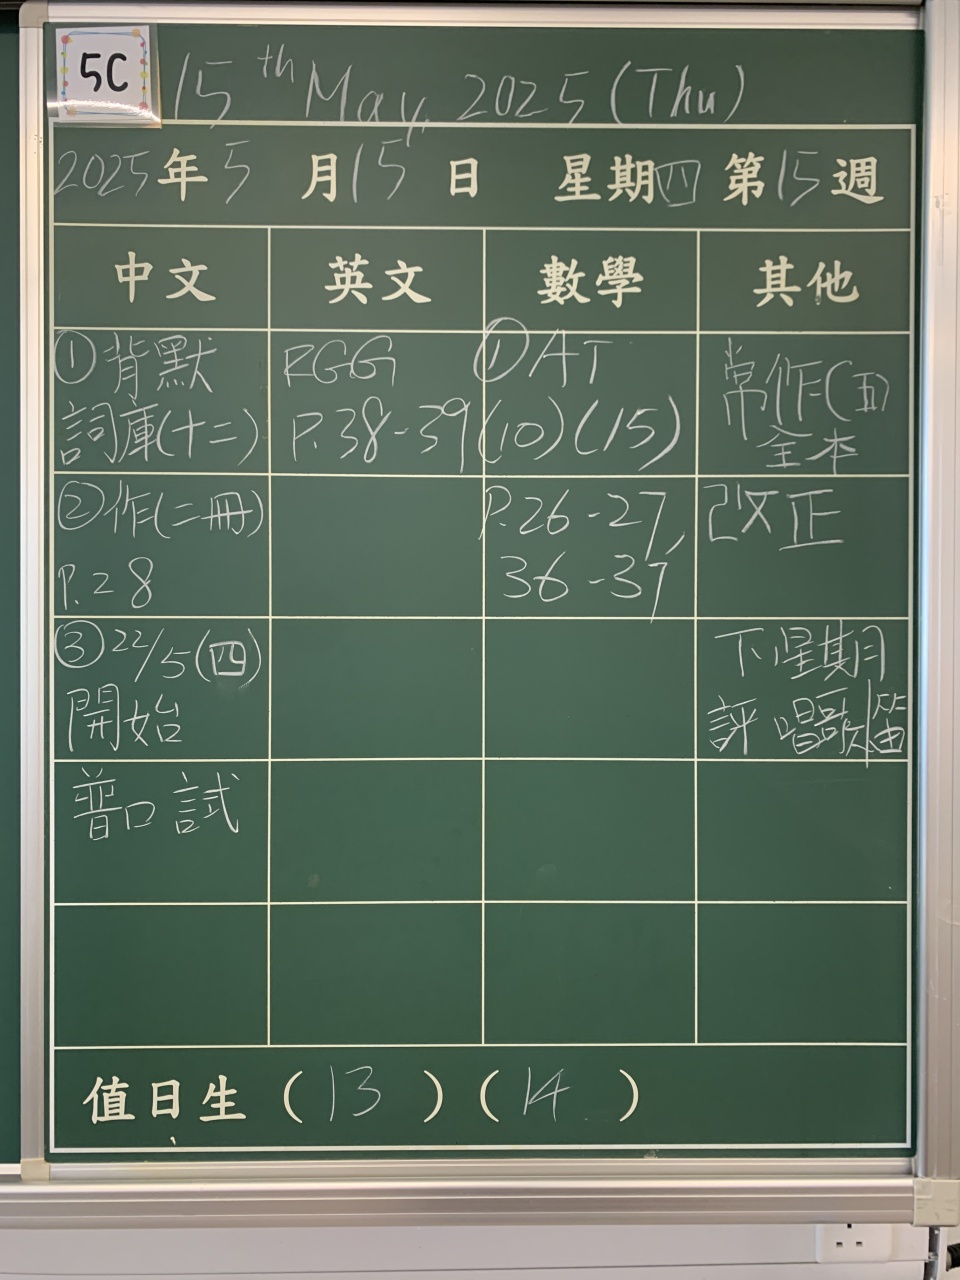 5C
15th May, 2025 (Thu)
2025年5月15日 星期四 第15週
中文 英文 數學 其他
①背默
詞庫(十二)
RGG
P.38-39
①AT
(10)(15)
常作(五)
全本
②作(二冊)
P.28
P.26-27,
36-37
改正
③22/5(四)
開始
下星期
評 唱歌/笛
普口試
值日生(13)(14)